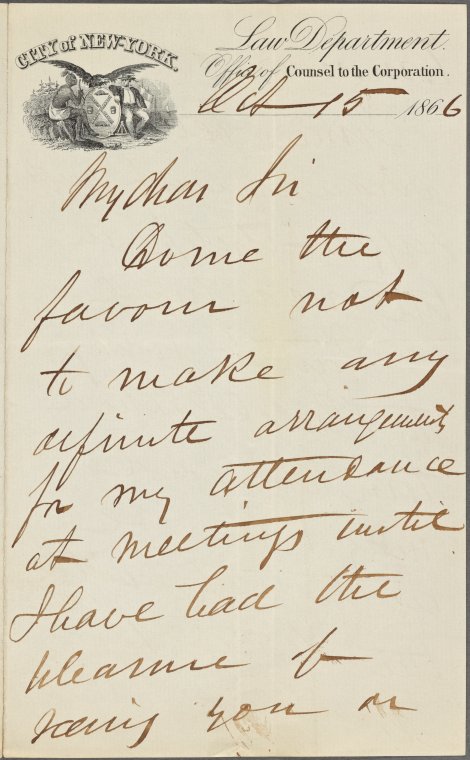 CITY of NEW-YORK.
Law Department.
Office of Counsel to the Corporation.
Oct 15 1866
My dear Sir
Do me the
favour not
to make any
definite arrangements
for my attendance
at meetings until
I have had the
pleasure of
seeing you or